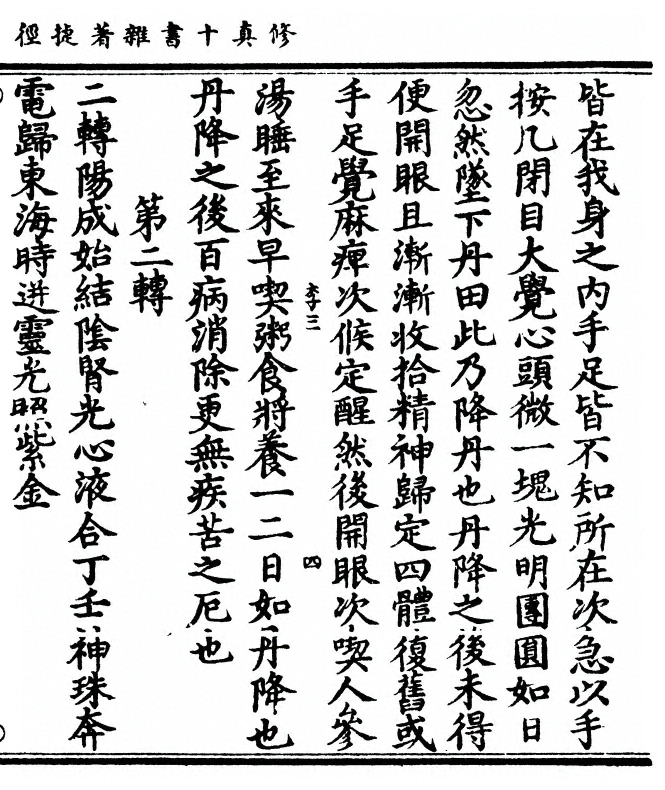 修真十書雜著捷徑
皆在我身之內手足皆不知所在次急以手
按几閉目大覺心頭微一塊光明團圓如日
忽然墜下丹田此乃降丹也丹降之後未得
便開眼且漸漸收拾精神歸定四體復舊或
手足覺麻痺次候定醒然後開眼次喫人參
湯睡至來早喫粥食將養一二日如丹降也
丹降之後百病消除更無疾苦之厄也
第二轉
二轉陽成始結陰腎光心液合丁壬神珠奔
電歸東海時迸靈光照紫金